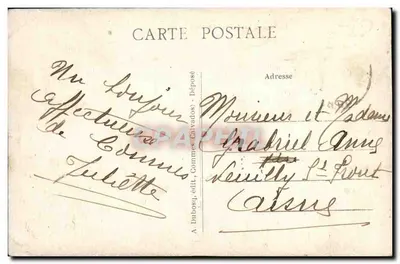 CARTE POSTALE
Adresse
Un bonjour
affectueux
de Commes
Juliette
A. Dubosq, édit., Commes (Calvados) - Déposé
Monsieur et Madame
Gabriel Anne
Neuilly St Front
Aisne